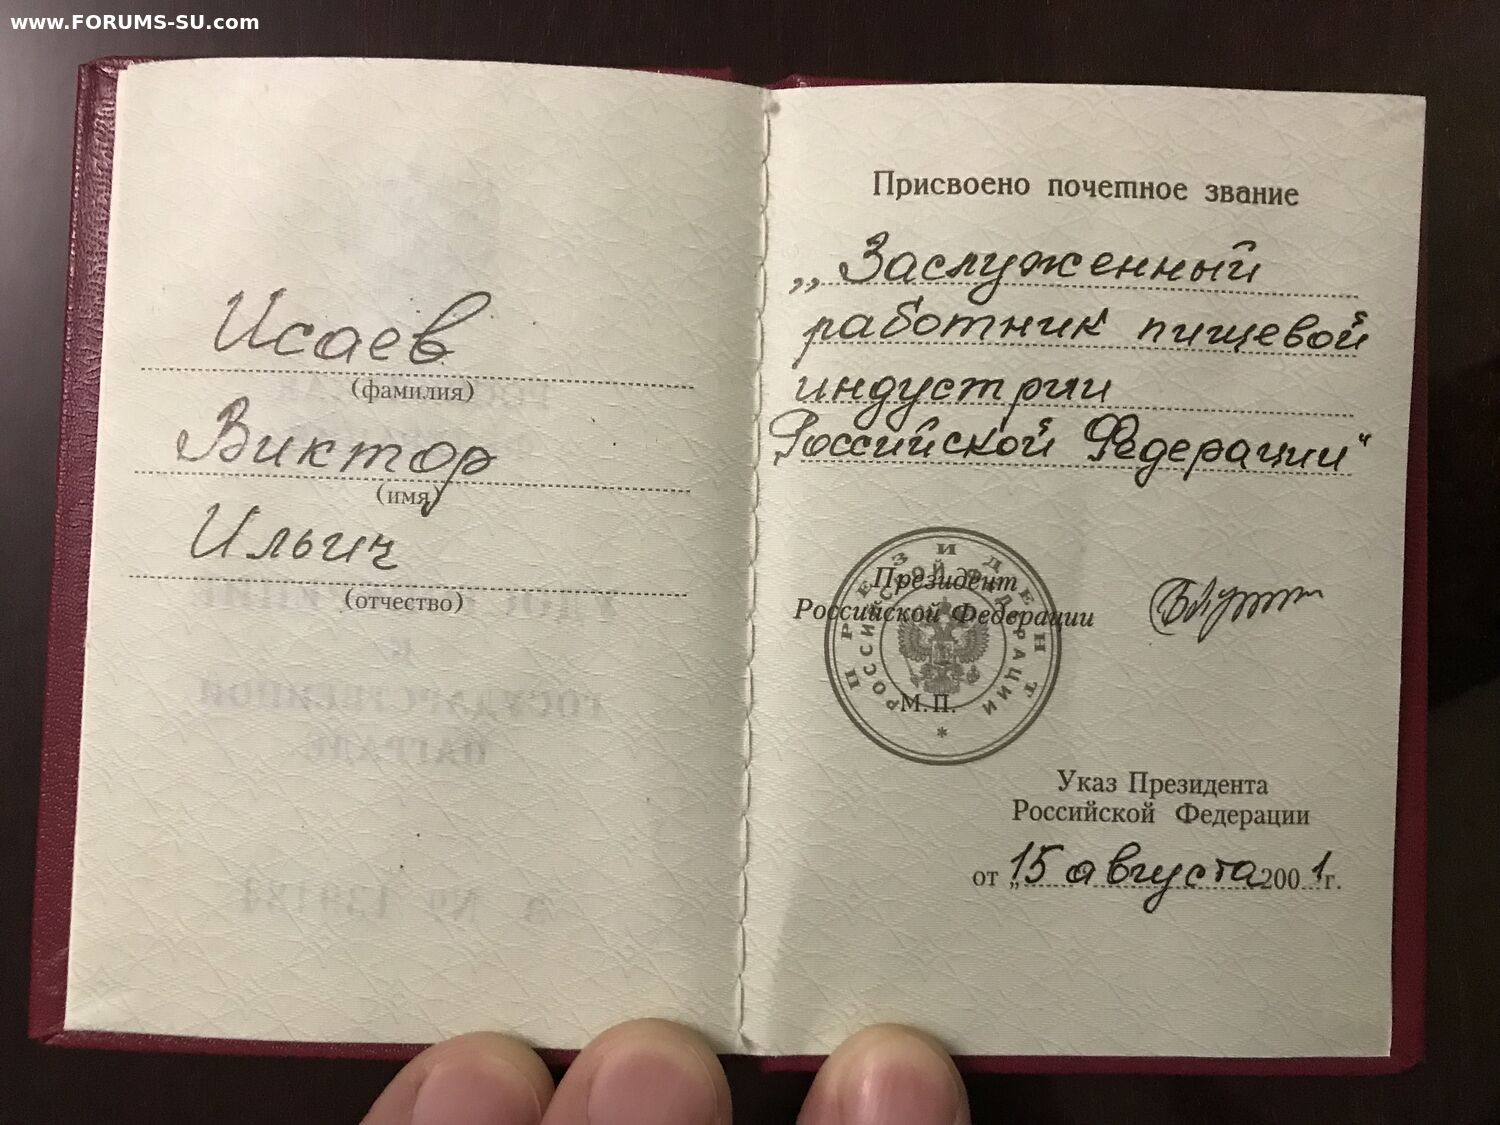 www.FORUMS-SU.com
Исаев
(фамилия)
Виктор
(имя)
Ильич
(отчество)
Присвоено почетное звание
„Заслуженный
работник пищевой
индустрии
Российской Федерации“
Президент
Российской Федерации
ПРЕЗИДЕНТ
РОССИЙСКОЙ ФЕДЕРАЦИИ
М.П.
*
Указ Президента
Российской Федерации
от „15 августа 2001г.